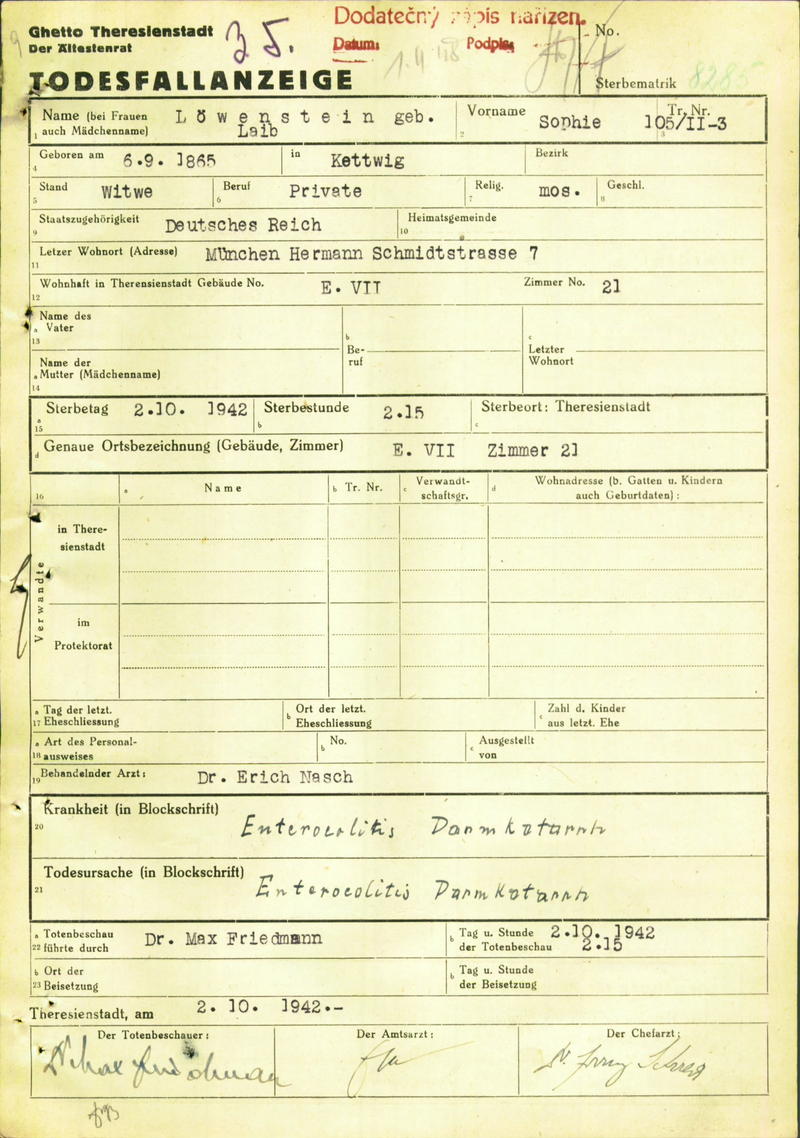 Ghetto Theresienstadt
Der Ältestenrat
Dodatečný zápis nařízen.
Datum: Podpis
No.
TODESFALLANZEIGE
Sterbematrik 8285
Name (bei Frauen auch Mädchenname) Löwenstein geb. Laib
1
Vorname Sophie
2
Tr. Nr. 105/II-3
3
Geboren am 6.9. 1865 in Kettwig Bezirk
4
Stand Witwe Beruf Private Relig. mos. Geschl.
5 6 7 8
Staatszugehörigkeit Deutsches Reich Heimatsgemeinde
9 10
Letzer Wohnort (Adresse) München Hermann Schmidtstrasse 7
11
Wohnhaft in Theresienstadt Gebäude No. E. VII Zimmer No. 21
12
Name des
a Vater
13
b Beruf
c Letzter Wohnort
Name der
a Mutter (Mädchenname)
14
Sterbetag 2.10. 1942 Sterbestunde 2.15 Sterbeort: Theresienstadt
a 15 b c
d Genaue Ortsbezeichnung (Gebäude, Zimmer) E. VII Zimmer 21
16 a Name b Tr. Nr. c Verwandt-schaftsgr. d Wohnadresse (b. Gatten u. Kindern auch Geburtdaten):
Verwandte
in There-
sienstadt
im
Protektorat
a Tag der letzt. b Ort der letzt. c Zahl d. Kinder
17 Eheschliessung Eheschliessung aus letzt. Ehe
a Art des Personal- b No. c Ausgestellt
18 ausweises von
19 Behandelnder Arzt: Dr. Erich Nasch
Krankheit (in Blockschrift)
20 Enterocolitis Darmkatarrh
Todesursache (in Blockschrift)
21 Enterocolitis Darmkatarrh
a Totenbeschau Dr. Max Friedmann b Tag u. Stunde 2.10. 1942
22 führte durch der Totenbeschau 2.15
b Ort der b Tag u. Stunde
23 Beisetzung der Beisetzung
Theresienstadt, am 2. 10. 1942.-
Der Totenbeschauer: Der Amtsarzt: Der Chefarzt: